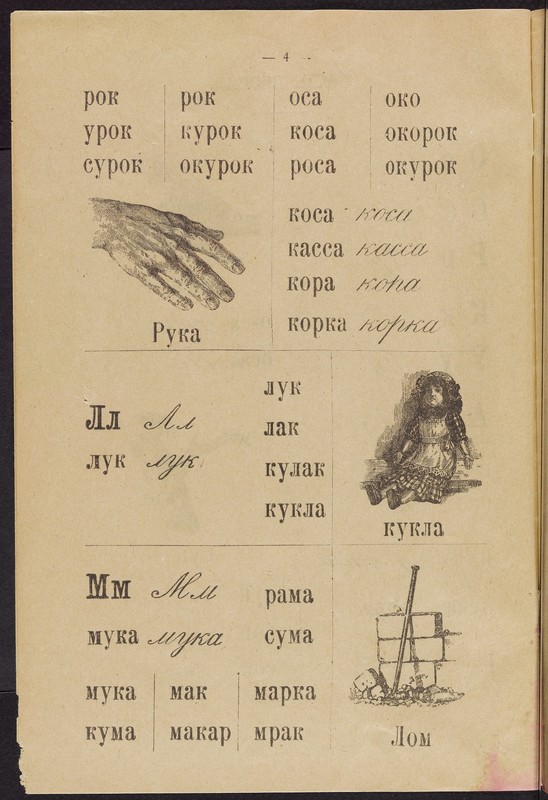 — 4 —
рок рок оса око
урок курок коса окорок
сурок окурок роса окурок
коса коса
касса касса
кора кора
корка корка
Рука
Лл Лл
лук лук
лук
лак
кулак
кукла
кукла
Мм Мм
мука мука
рама
сума
мука мак марка
кума макар мрак
Лом